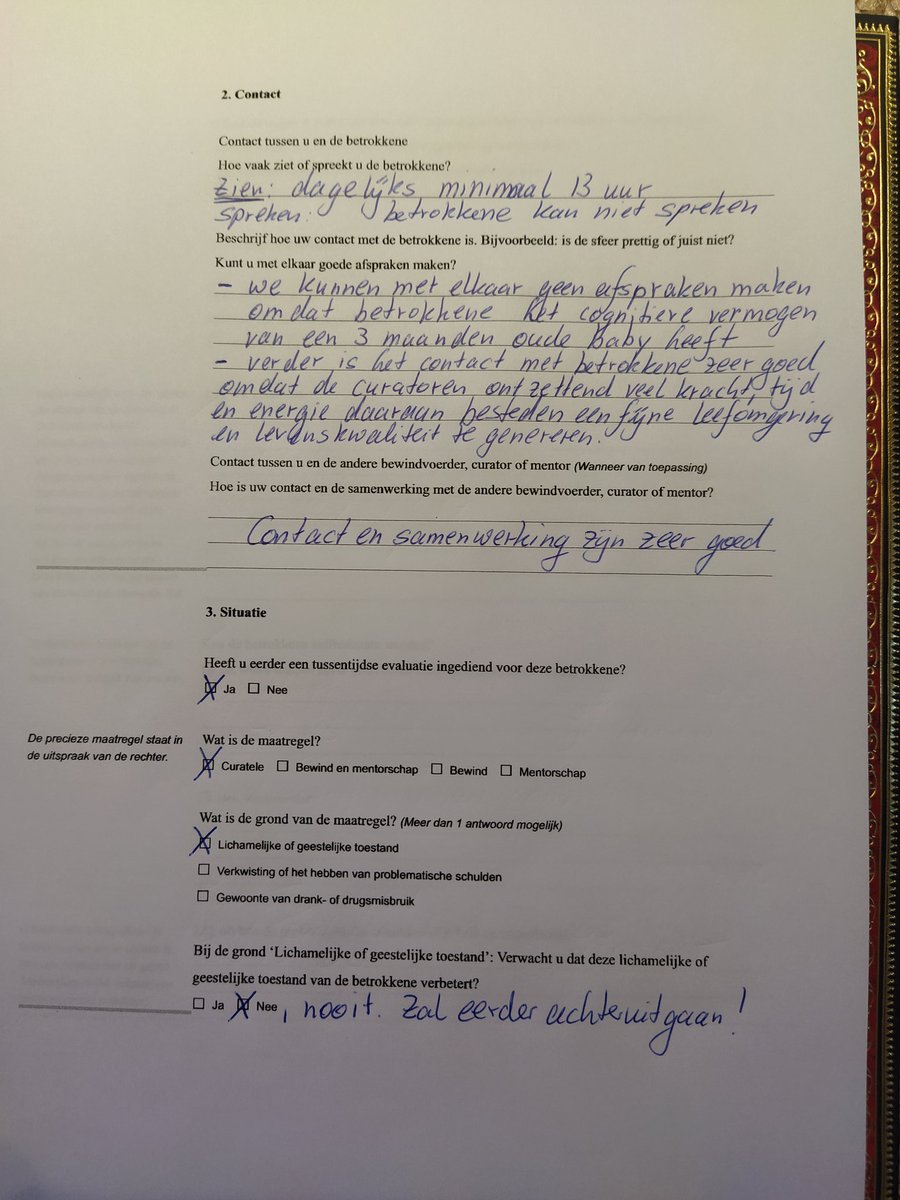 2. Contact
Contact tussen u en de betrokkene
Hoe vaak ziet of spreekt u de betrokkene?
Zien: dagelijks, minimaal 13 uur
spreken: betrokkene kan niet spreken
Beschrijf hoe uw contact met de betrokkene is. Bijvoorbeeld: is de sfeer prettig of juist niet?
Kunt u met elkaar goede afspraken maken?
- we kunnen met elkaar geen afspraken maken
omdat betrokkene het cognitieve vermogen
van een 3 maanden oude Baby heeft
- verder is het contact met betrokkene zeer goed
omdat de curatoren ontzettend veel kracht, tijd
en energie daaraan besteden een fijne leefomgeving
en levenskwaliteit te genereren.
Contact tussen u en de andere bewindvoerder, curator of mentor (Wanneer van toepassing)
Hoe is uw contact en de samenwerking met de andere bewindvoerder, curator of mentor?
Contact en samenwerking zijn zeer goed
3. Situatie
Heeft u eerder een tussentijdse evaluatie ingediend voor deze betrokkene?
Ja Nee
De precieze maatregel staat in
de uitspraak van de rechter.
Wat is de maatregel?
Curatele Bewind en mentorschap Bewind Mentorschap
Wat is de grond van de maatregel? (Meer dan 1 antwoord mogelijk)
Lichamelijke of geestelijke toestand
Verkwisting of het hebben van problematische schulden
Gewoonte van drank- of drugsmisbruik
Bij de grond 'Lichamelijke of geestelijke toestand': Verwacht u dat deze lichamelijke of
geestelijke toestand van de betrokkene verbetert?
Ja Nee, nooit. Zal eerder achteruitgaan!